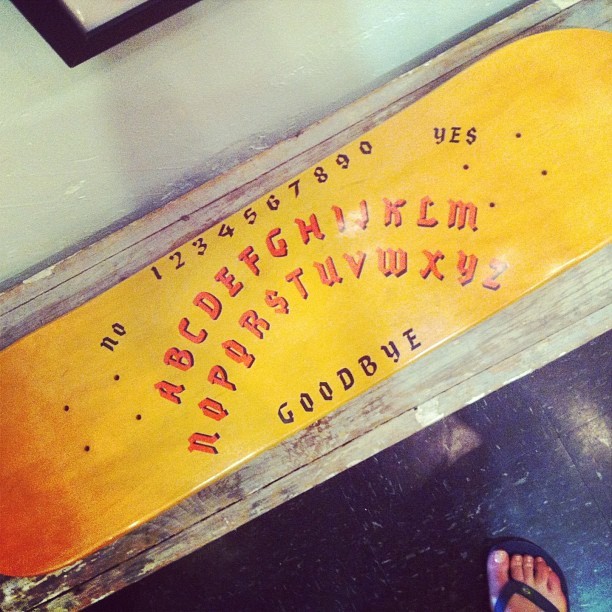 YES
1 2 3 4 5 6 7 8 9 0
NO
A B C D E F G H I J K L M
N O P Q R S T U V W X Y Z
GOODBYE